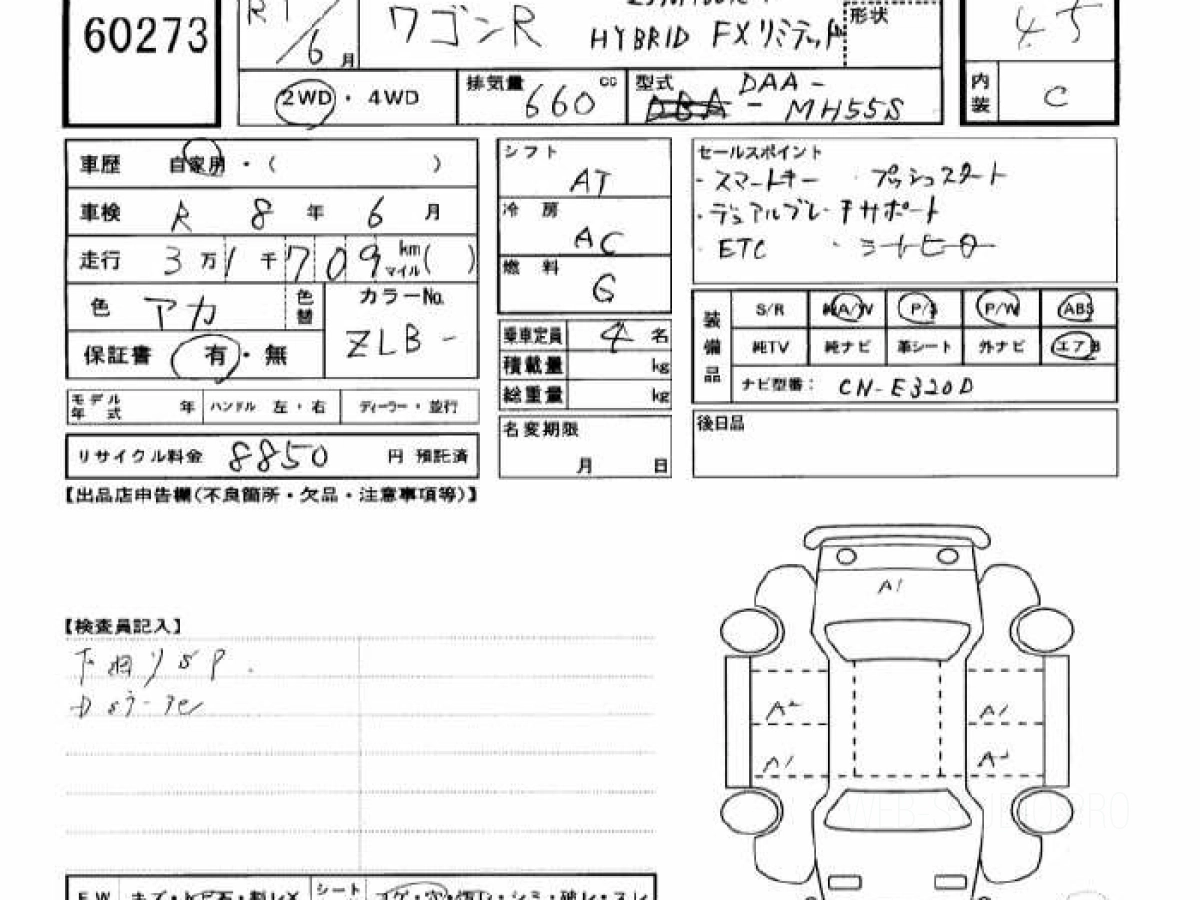 60273
R1/6月 ワゴンR
HYBRID FXリミテッド
形状
4.5
内装 C
2WD・4WD 排気量 660 cc 型式 DBA - DAA - MH55S
車歴 自家用・( )
車検 R 8 年 6 月
走行 3万1千709 km マイル( )
色 アカ 色替
カラーNo. ZLB -
保証書 有・無
モデル年式 年 ハンドル 左・右 ディーラー・並行
リサイクル料金 8850 円 預託済
シフト AT
冷房 AC
燃料 G
乗車定員 4 名
積載量 kg
総重量 kg
名変期限
月 日
セールスポイント
・スマートキー ・プッシュスタート
・デュアルブレーキサポート
・ETC ・シートヒーター
装備品
S/R 純A/W P/S P/W ABS
純TV 純ナビ 革シート 外ナビ エアB
ナビ型番: CN-E320D
後日品
【出品店申告欄(不良箇所・欠品・注意事項等)】
【検査員記入】
A1
A2 A1
A1 A2
シート